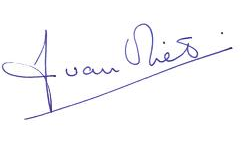 Juan Nieto